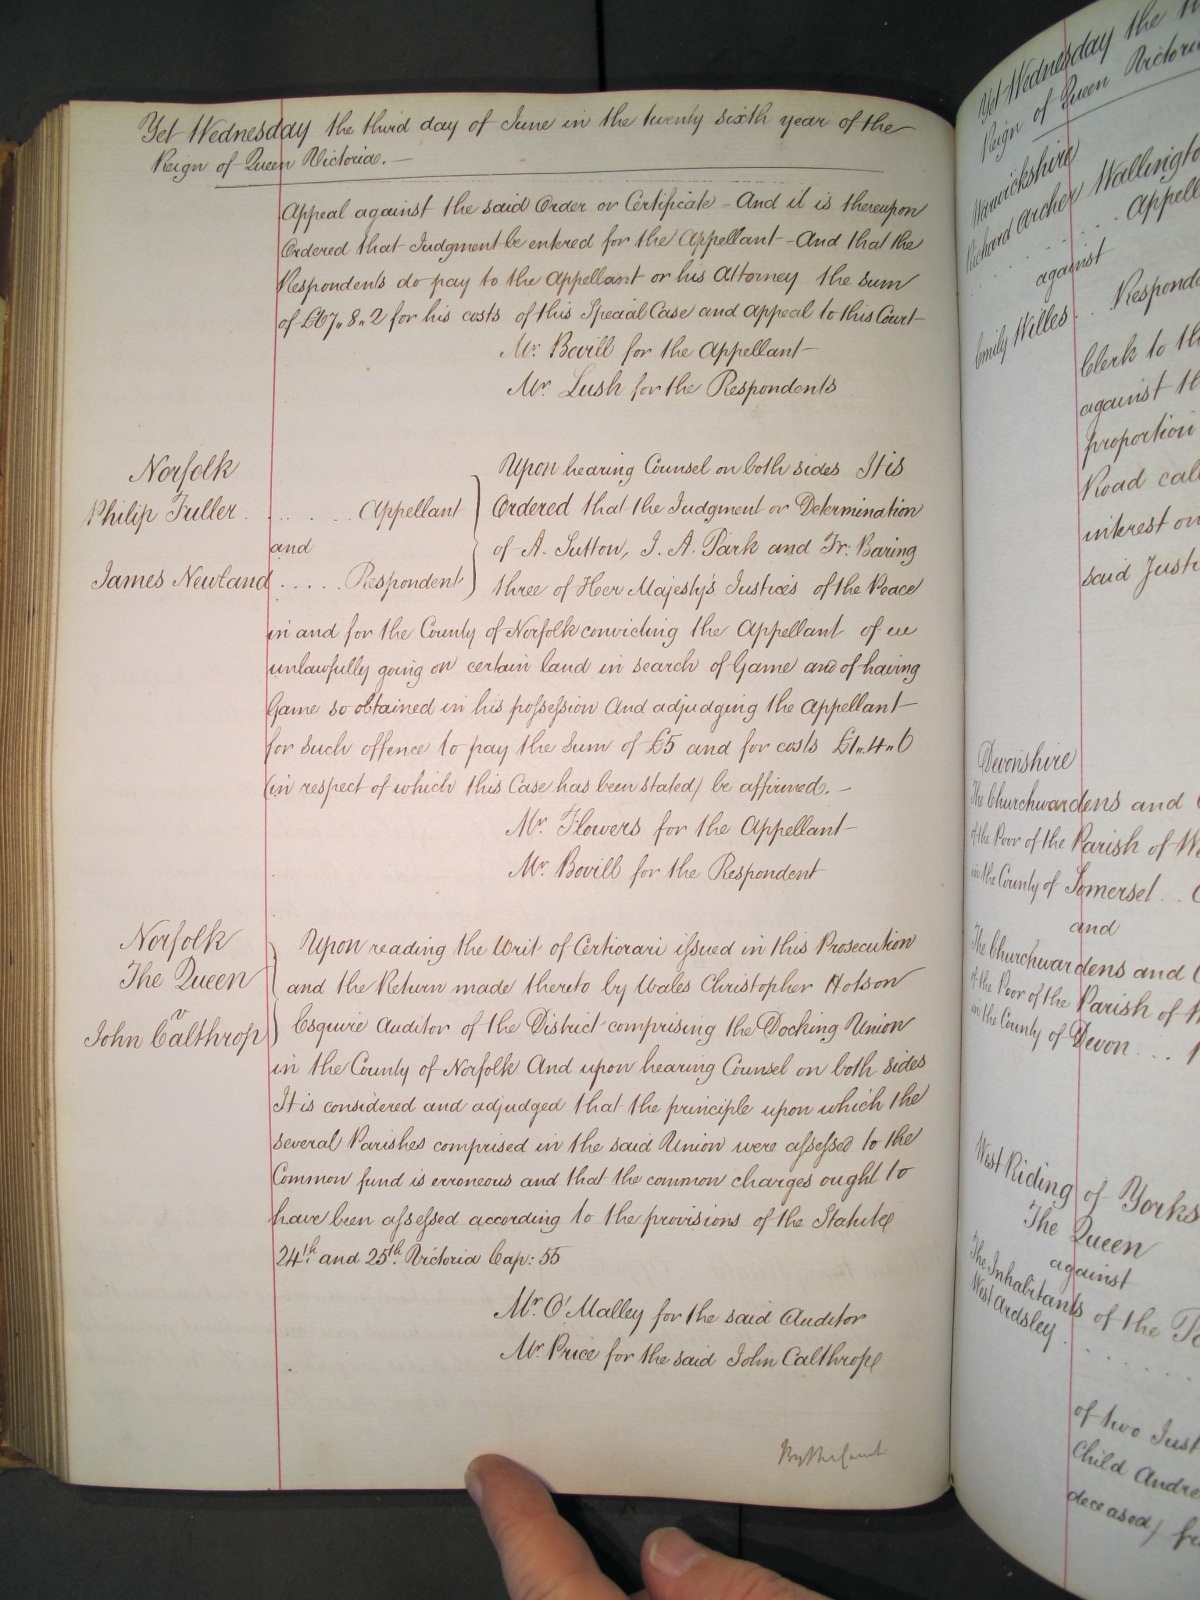 Yet Wednesday the third day of June in the twenty sixth year of the
Reign of Queen Victoria. —
Appeal against the said Order or Certificate – And it is thereupon
Ordered that Judgment be entered for the Appellant – And that the
Respondents do pay to the Appellant or his Attorney the sum
of £67„8„2 for his costs of this Special Case and appeal to this Court –
Mr. Bovill for the Appellant –
Mr. Lush for the Respondents
Norfolk
Philip Fuller . . . . . . . Appellant
and
James Newland . . . . . Respondent
Upon hearing Counsel on both sides It is
Ordered that the Judgment or Determination
of A. Sutton, J. A. Park and Fr: Baring
three of Her Majesty's Justices of the Peace
in and for the County of Norfolk convicting the Appellant of
unlawfully going on certain land in search of Game and of having
Game so obtained in his possession And adjudging the Appellant –
for such offence to pay the sum of £5 and for costs £1„4„6
(in respect of which this Case has been stated) be affirmed. –
Mr. Flowers for the Appellant –
Mr. Bovill for the Respondent
Norfolk
The Queen
v
John Calthrop
Upon reading the Writ of Certiorari issued in this Prosecution
and the Return made thereto by Wales Christopher Hotson
Esquire Auditor of the District comprising the Docking Union
in the County of Norfolk And upon hearing Counsel on both sides
It is considered and adjudged that the principle upon which the
several Parishes comprised in the said Union were assessed to the
Common fund is erroneous and that the common charges ought to
have been assessed according to the provisions of the Statute
24th and 25th Victoria Cap: 55
Mr. O'Malley for the said Auditor
Mr. Price for the said John Calthrop
By the Court
Yet Wednesday the
Reign of Queen Victoria
Warwickshire
Richard Archer Wallington
. . . . . Appell
against
Emily Willes . . Responde
Clerk to th
against th
proportion
Road call
interest on
said Just
Devonshire
The Churchwardens and
of the Poor of the Parish of W
in the County of Somerset . .
and
The Churchwardens and
of the Poor of the Parish of
in the County of Devon . . .
West Riding of Yorks
The Queen
against
The Inhabitants of the
West Ardsley .
of two Just
Child Andre
deceased) fr